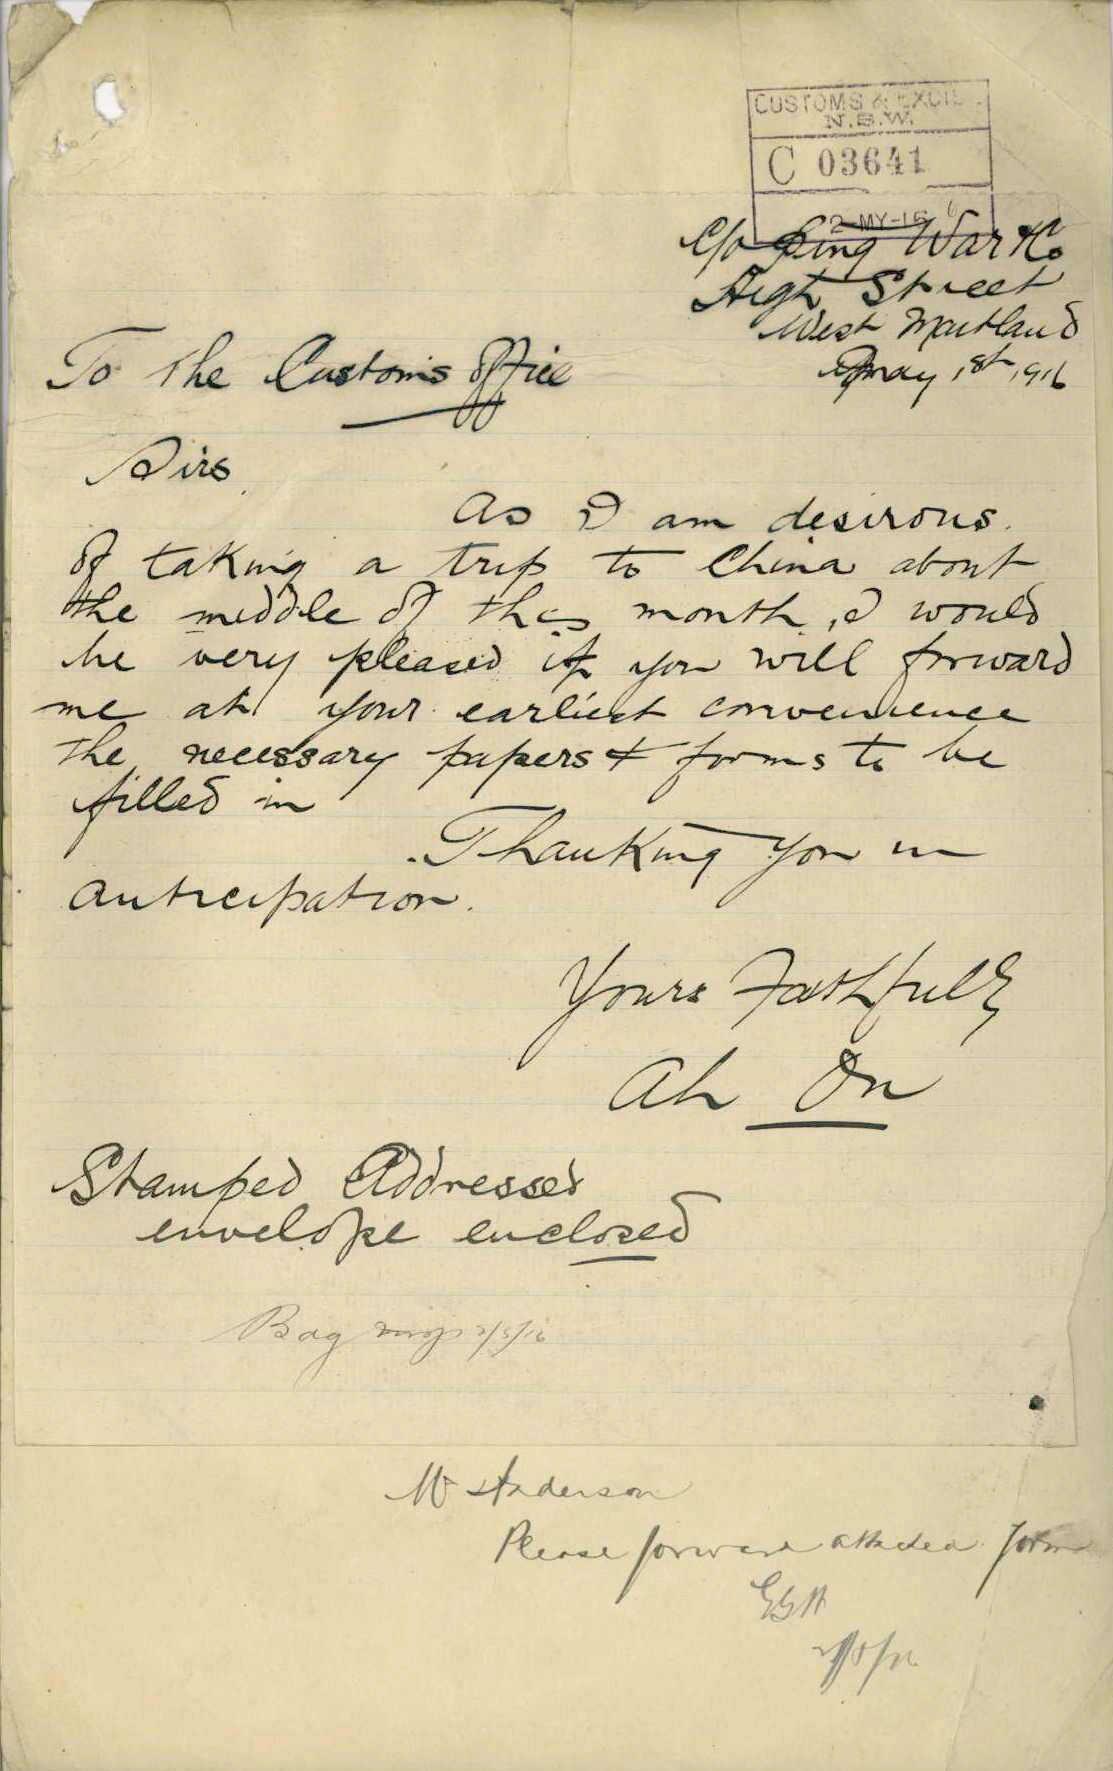 CUSTOMS & EXCIS
N.S.W.
C 03641
2-MY-16
C/o Ping War & Co
High Street
West Maitland
May 1st 1916
To The Customs Office
Sirs
As I am desirous.
of taking a trip to China about
the middle of this month, I would
be very pleased if you will forward
me at your earliest convenience
the necessary papers & forms to be
filled in
Thanking you in
anticipation.
Yours Faithfully
Ah On
Stamped Addressed
envelope enclosed
Bag 2/5/16
Mr Anderson
Please forward attached form